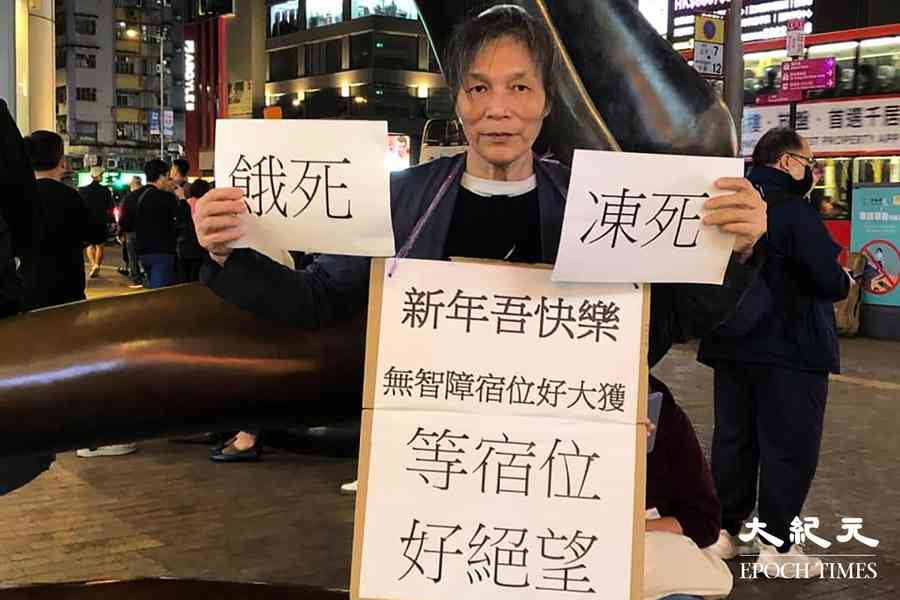 餓死
凍死
新年吾快樂
無智障宿位好大獲
等宿位
好絕望
大紀元
EPOCH TIMES
7
12